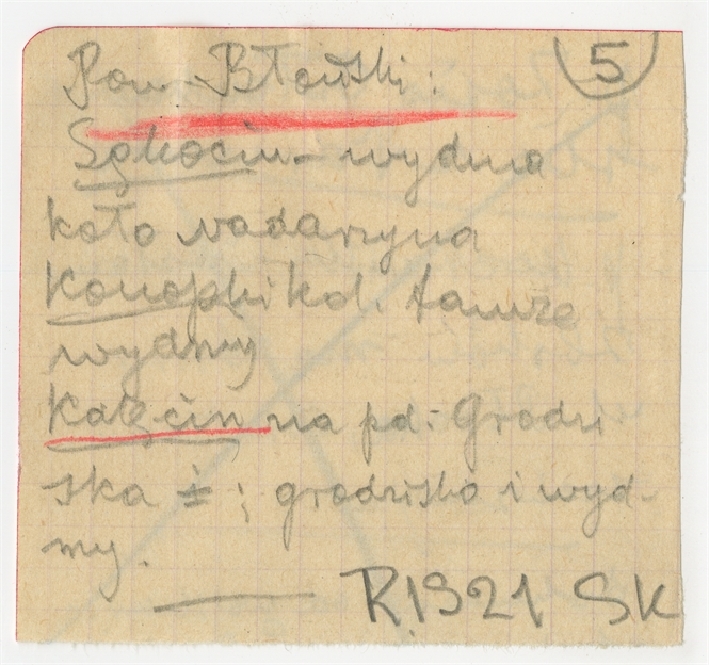 5
Pow. Błoński:
Sękocin - wydma
koło Nadarzyna
Konopki kol. tamże
wydmy
Kałęcin na pd. Grodzi
ska ± ; grodzisko i wyd-
my.
R.1921 SK